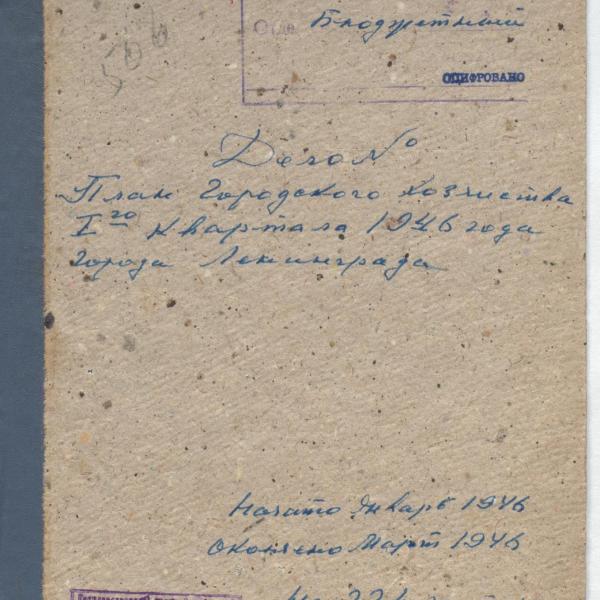 506
Отдел
Бюджетный
ОЦИФРОВАНО
Дело №
План городского хозяйства
I го квартала 1946 года
города Ленинграда
Начато Январь 1946
Окончено Март 1946
На 22